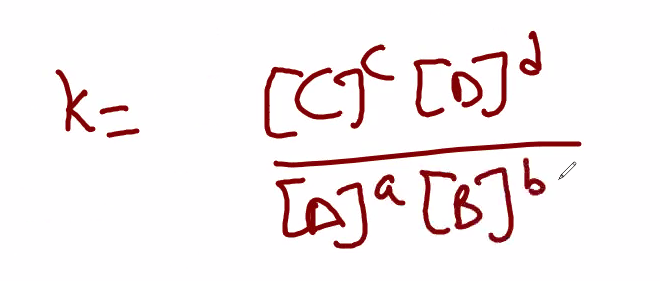 K = [C]^c [D]^d
[A]^a [B]^b